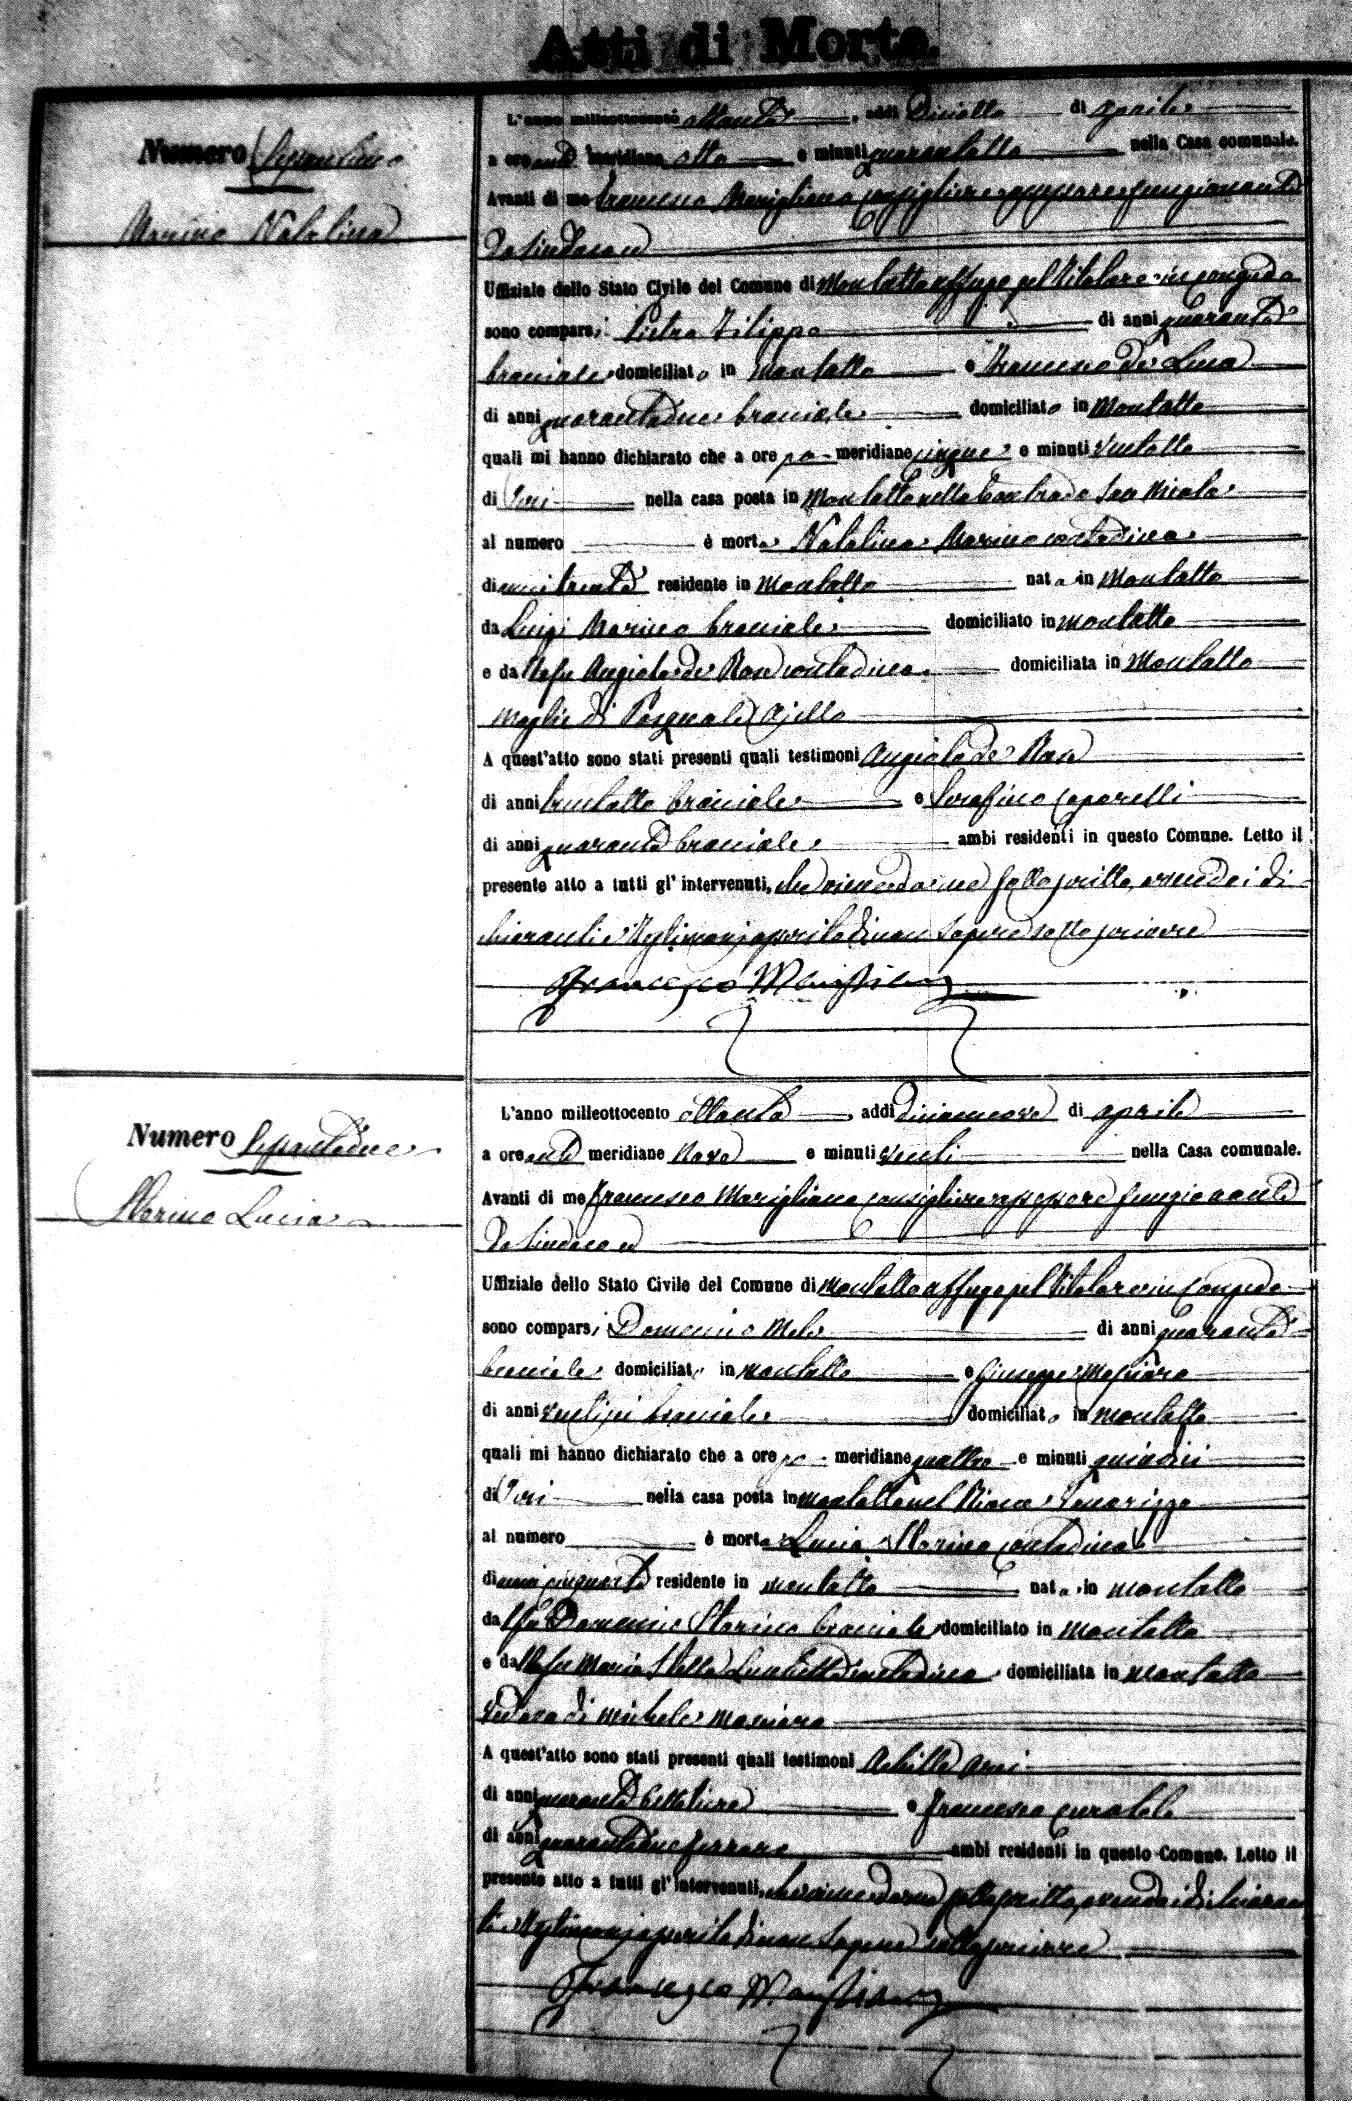 Atti di Morte.
Numero Sessantuno
Marino Natalina
L'anno milleottocento ottanta, addì Diciotto di Aprile
a ore anti meridiane otto e minuti quarantotto nella Casa comunale.
Avanti di me Francesco Marigliano Consigliere assessore funzionante
da Sindaco ed
Uffiziale dello Stato Civile del Comune di Montalto Uffugo pel titolare in congedo
sono comparsi Pietro Filippo di anni quaranta
bracciale domiciliato in Montalto e Francesco de Luca
di anni quarantadue bracciale domiciliato in Montalto
quali mi hanno dichiarato che a ore po meridiane cinque e minuti ventotto
di Ieri nella casa posta in Montalto nella Contrada San
al numero è morta Natalina Marino contadina
di anni trenta residente in Montalto nata in Montalto
da Luigi Marino bracciale domiciliato in Montalto
e da fu Angiola de Rose contadina domiciliata in Montalto
moglie di Pasquale Ajello
A quest'atto sono stati presenti quali testimoni Angiolo de Rose
di anni trentotto bracciale e Serafino Caparelli
di anni quaranta bracciale ambi residenti in questo Comune. Letto il
presente atto a tutti gl' intervenuti, che viene da me sottoscritto, avendo i di
chiaranti e testimonj asserito di non sapere sottoscrivere
Francesco Marigliano
Numero
Storino Lucia
L'anno milleottocento ottanta, addì diciannove di Aprile
a ore anti meridiane Nove e minuti venti nella Casa comunale.
Avanti di me Francesco Marigliano Consigliere assessore funzionante
da Sindaco ed
Uffiziale dello Stato Civile del Comune di Montalto Uffugo pel titolare in congedo
sono comparsi Domenico Mele di anni quaranta
bracciale domiciliato in Montalto e Giuseppe
di anni ventisei bracciale domiciliato in Montalto
quali mi hanno dichiarato che a ore po meridiane quattro e minuti quindici
di Ieri nella casa posta in Montalto nel Rione
al numero è morta Lucia Storino contadina
di anni cinquanta residente in Montalto nata in Montalto
da fu Domenico Storino bracciale domiciliato in Montalto
e da fu Maria Stella contadina domiciliata in Montalto
vedova di Michele
A quest'atto sono stati presenti quali testimoni Achille
di anni quaranta bettoliere e Francesco Curatolo
di anni quarantadue ferraro ambi residenti in questo Comune. Letto il
presente atto a tutti gl' intervenuti, che viene da me sottoscritto, avendo i dichiaran
ti e testimonj asserito di non sapere sottoscrivere
Francesco Marigliano